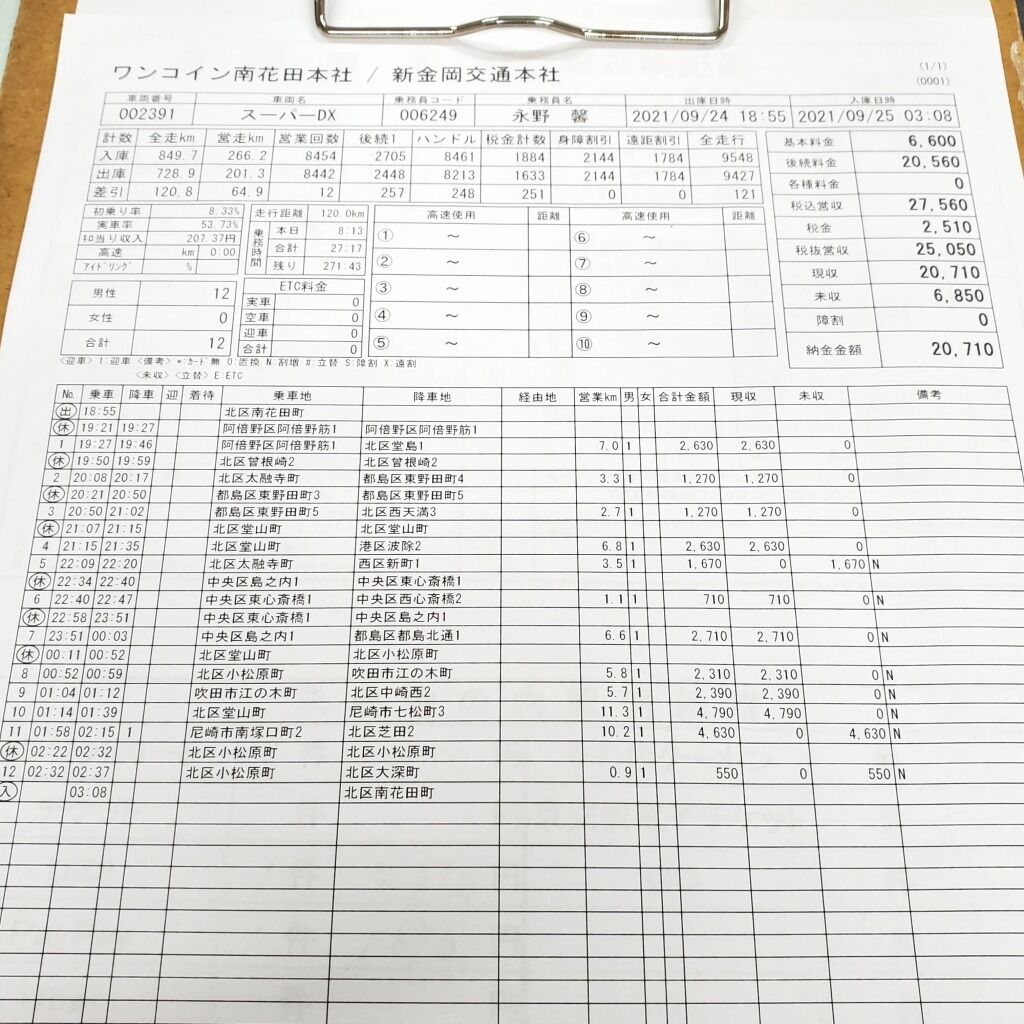 ワンコイン南花田本社 / 新金岡交通本社
(1/1)
(0001)
車両番号 車両名 乗務員コード 乗務員名 出庫日時 入庫日時
002391 スーパーDX 006249 永野 馨 2021/09/24 18:55 2021/09/25 03:08
計数 全走km 営走km 営業回数 後続1 ハンドル 税金計数 身障割引 遠距割引 全走行
入庫 849.7 266.2 8454 2705 8461 1884 2144 1784 9548
出庫 728.9 201.3 8442 2448 8213 1633 2144 1784 9427
差引 120.8 64.9 12 257 248 251 0 0 121
基本料金 6,600
後続料金 20,560
各種料金 0
税込営収 27,560
税金 2,510
税抜営収 25,050
現収 20,710
未収 6,850
障割 0
納金金額 20,710
初乗り率 8.33%
実車率 53.73%
キロ当り収入 207.37円
高速 km 0:00
アイドリング %
走行距離 120.0km
乗務時間 本日 8:13
合計 27:17
残り 271:43
男性 12
女性 0
合計 12
ETC料金
実車 0
空車 0
迎車 0
合計 0
高速使用 距離 高速使用 距離
① ～ ⑥ ～
② ～ ⑦ ～
③ ～ ⑧ ～
④ ～ ⑨ ～
⑤ ～ ⑩ ～
<迎車> 1:迎車 <備考> *:カード無 O:置換 N:割増 #:立替 S:障割 X:遠割
<未収> <立替> E:ETC
No. 乗車 降車 迎 着待 乗車地 降車地 経由地 営業km 男 女 合計金額 現収 未収 備考
出 18:55 北区南花田町
休 19:21 19:27 阿倍野区阿倍野筋1 阿倍野区阿倍野筋1
1 19:27 19:46 阿倍野区阿倍野筋1 北区堂島1 7.0 1 2,630 2,630 0
休 19:50 19:59 北区曾根崎2 北区曾根崎2
2 20:08 20:17 北区太融寺町 都島区東野田町4 3.3 1 1,270 1,270 0
休 20:21 20:50 都島区東野田町3 都島区東野田町5
3 20:50 21:02 都島区東野田町5 北区西天満3 2.7 1 1,270 1,270 0
休 21:07 21:15 北区堂山町 北区堂山町
4 21:15 21:35 北区堂山町 港区波除2 6.8 1 2,630 2,630 0
5 22:09 22:20 北区太融寺町 西区新町1 3.5 1 1,670 0 1,670 N
休 22:34 22:40 中央区島之内1 中央区東心斎橋1
6 22:40 22:47 中央区東心斎橋1 中央区西心斎橋2 1.1 1 710 710 0 N
休 22:58 23:51 中央区東心斎橋1 中央区島之内1
7 23:51 00:03 中央区島之内1 都島区都島北通1 6.6 1 2,710 2,710 0 N
休 00:11 00:52 北区堂山町 北区小松原町
8 00:52 00:59 北区小松原町 吹田市江の木町 5.8 1 2,310 2,310 0 N
9 01:04 01:12 吹田市江の木町 北区中崎西2 5.7 1 2,390 2,390 0 N
10 01:14 01:39 北区堂山町 尼崎市七松町3 11.3 1 4,790 4,790 0 N
11 01:58 02:15 1 尼崎市南塚口町2 北区芝田2 10.2 1 4,630 0 4,630 N
休 02:22 02:32 北区小松原町 北区小松原町
12 02:32 02:37 北区小松原町 北区大深町 0.9 1 550 0 550 N
入 03:08 北区南花田町